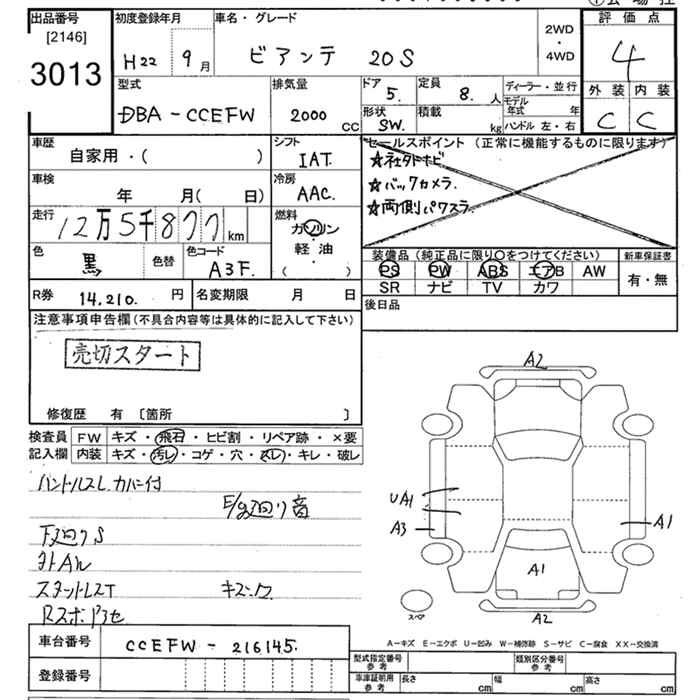 出品番号
[2146]
3013
初度登録年月
H22 9月
車名・グレード
ビアンテ 20S
2WD
・
4WD
評価点
4
外装 内装
C C
型式
DBA-CCEFW
排気量
2000 CC
ドア
5.
定員
8. 人
形状
SW.
積載
kg
ディーラー・並行
モデル年式 年
ハンドル 左・右
車歴
自家用・( )
シフト
IAT.
セールスポイント (正常に機能するものに限ります)
☆社外ナビ
☆バックカメラ.
☆両側パワスラ.
車検
年 月( 日)
冷房
AAC.
走行
12万5千877 km
燃料
ガソリン
軽油
( )
色
黒
色替
色コード
A3F.
装備品 (純正品に限り○をつけてください)
新車保証書
PS PW ABS エアB AW
SR ナビ TV カワ
有・無
R券 14,210. 円
名変期限 月 日
後日品
注意事項申告欄 (不具合内容等は具体的に記入して下さい)
売切スタート
修復歴 有 〔箇所 〕
検査員 FW キズ・飛石・ヒビ割・リペア跡・×要
記入欄 内装 キズ・汚レ・コゲ・穴・スレ・キレ・破レ
ハンドルスレ カバー付
E/g廻り音
下廻りS
スタットレスT
A2
UA1
A3
A1
A1
A2
スペア
車台番号 CCEFW-216145.
登録番号
A-キズ E-エクボ U-凹み W-補修跡 S-サビ C-腐食 XX-交換済
型式指定番号 参考
類別区分番号 参考
車庫証明用 参考 長さ cm 幅 cm 高さ cm